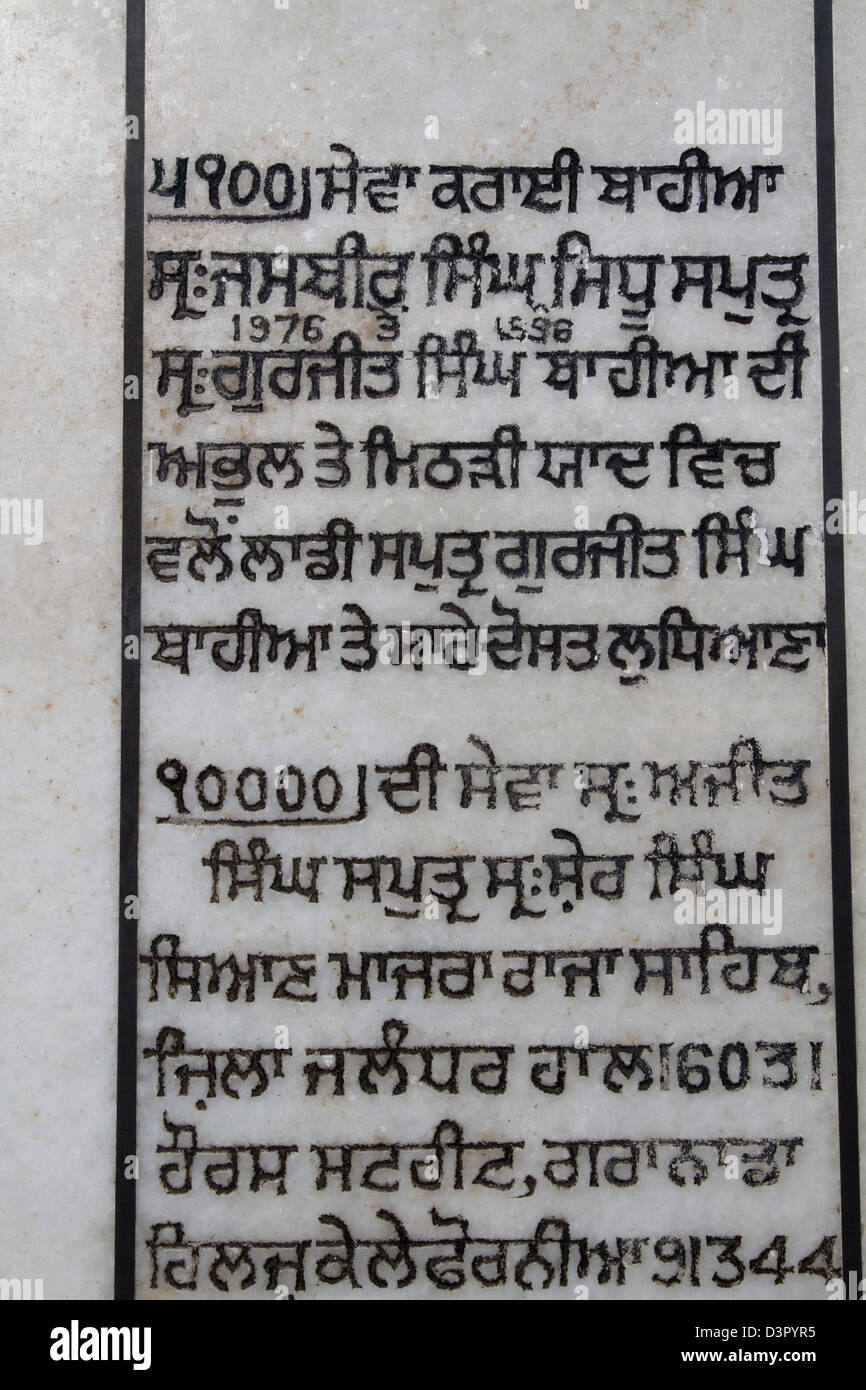 ੫੧੦੦) ਸੇਵਾ ਕਰਾਈ ਬਾਹੀਆ
ਸ੍ਰ: ਜਸਬੀਰ ਸਿੰਘ ਸਿਧੂ ਸਪੁਤ੍ਰ
1976 ਤੇ 1996
ਸ੍ਰ: ਗੁਰਜੀਤ ਸਿੰਘ ਬਾਹੀਆ ਦੀ
ਅਭੁਲ ਤੇ ਮਿਠੜੀ ਯਾਦ ਵਿਚ
ਵਲੋਂ ਲਾਡੀ ਸਪੁਤ੍ਰ ਗੁਰਜੀਤ ਸਿੰਘ
ਬਾਹੀਆ ਤੇ ਸਾਰੇ ਦੋਸਤ ਲੁਧਿਆਣਾ
੧੦੦੦੦) ਦੀ ਸੇਵਾ ਸ੍ਰ: ਅਜੀਤ
ਸਿੰਘ ਸਪੁਤ੍ਰ ਸ੍ਰ: ਸ਼ੇਰ ਸਿੰਘ
ਸਿਆਣ ਮਾਜਰਾ ਰਾਜਾ ਸਾਹਿਬ,
ਜ਼ਿਲਾ ਜਲੰਧਰ ਹਾਲ 16031
ਹੌਰਸ ਸਟਰੀਟ, ਗਰਾਨਾਡਾ
ਹਿਲਜ਼ ਕੇਲੇਫੋਰਨੀਆ 91344
alamy
Image ID: D3PYR5
www.alamy.com